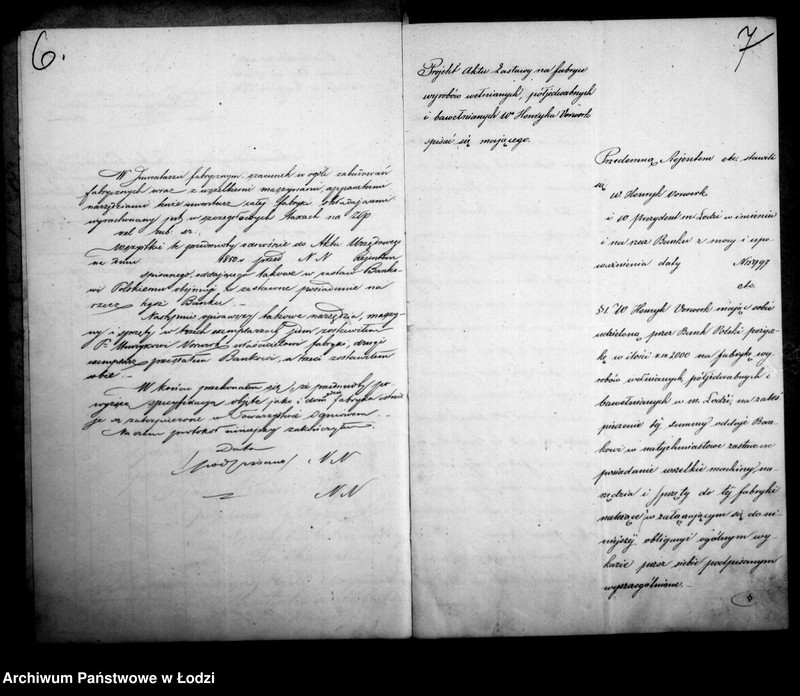 6.
W Inwentarzu fabrycznym, szacunek w ogóle zabudowań
fabrycznych wraz z wszelkiemi maszynami, apparatami
narzędziami cały fabryki składającemi
wyrachowany jest w szczegółowych taxach na złp
vel rub. sr.
Wszystkie te przedmioty odnośnie do Aktu Urzędowego
na dniu 1850 r przed N N Rejentem
spisanego, oddającego takowe w zastaw Banko-
wi Polskiemu objąłem w zastawne posiadanie na
rzecz tegoż Banku. —
Następnie spisawszy takowe narzędzia, maszy-
ny i sprzęty w trzech exemplarzach, jeden zostawiłem
P. Henrykowi Vorwerk właścicielowi fabryki, drugi
exemplarz przesłałem Bankowi, a trzeci zostawiłem
sobie. —
W końcu przekonałem się, że przedmioty po-
wyższą specyfikacją objęte jako i dom fabryka istnie-
je są zabezpieczone w Towarzystwie Ogniowem. —
Na czem protokół niniejszy zakończyłem
Data
/podpisano/ N N
N N
7
Projekt Aktu Zastawy na fabryce
wyrobów wełnianych, półjedwabnych
i bawełnianych W° Henryka Vorwerk
spisać się mającego.
Przedemną Rejentem etc. stawili
się
W Henryk Vorwerk
i W prezydent m. Łodzi w imieniu
i na rzecz Banku z mocy i upo-
ważnienia daty N° 18797
etc
§ 1. W Henryk Vorwerk mając sobie
udzieloną przez Bank Polski pożycz-
kę w ilości rsr. 2000 na fabrykę wy-
robów wełnianych, półjedwabnych i
bawełnianych w m. Łodzi, na zabez-
pieczenie tej summy oddaje Ban-
kowi w natychmiastowe zastawne
posiadanie wszelkie machiny, na-
rzędzia i sprzęty do tej fabryki
należące w załączającym się do ni-
niejszej obligacyi ogólnym wy-
kazie przez siebie podpisanym
wyszczególnione. —
Archiwum Państwowe w Łodzi